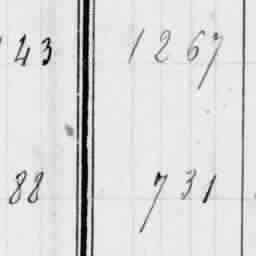 143 1267
88 731